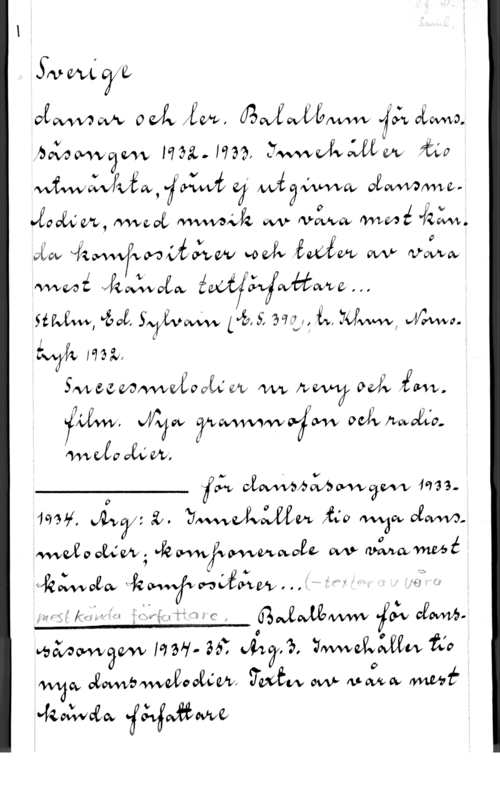 Sverige
dansar och ler. Balalbum för dans-
säsongen 1932-1933. Innehåller tio
utmärkta, förut ej utgivna dansme-
lodier, med musik av våra mest kän-
da kompositörer och texter av våra
mest kända textförfattare...
Sthlm, Ed. Sylvain (E.S. 392), tr. Khvn, Norns-
tryk 1932.
Succesmelodier ur revy och ton-
film. Nya grammofon och radio-
melodier.
för danssäsongen 1933-
1934. Årg: 2. Innehåller tio nya dans-
melodier; komponerade av våra mest
kända kompositörer...(-texter av våra
mest kända författare.
Balalbum för dans-
säsongen 1934-35. Årg. 3. Innehåller tio
nya dansmelodier. Texter av våra mest
kända författare